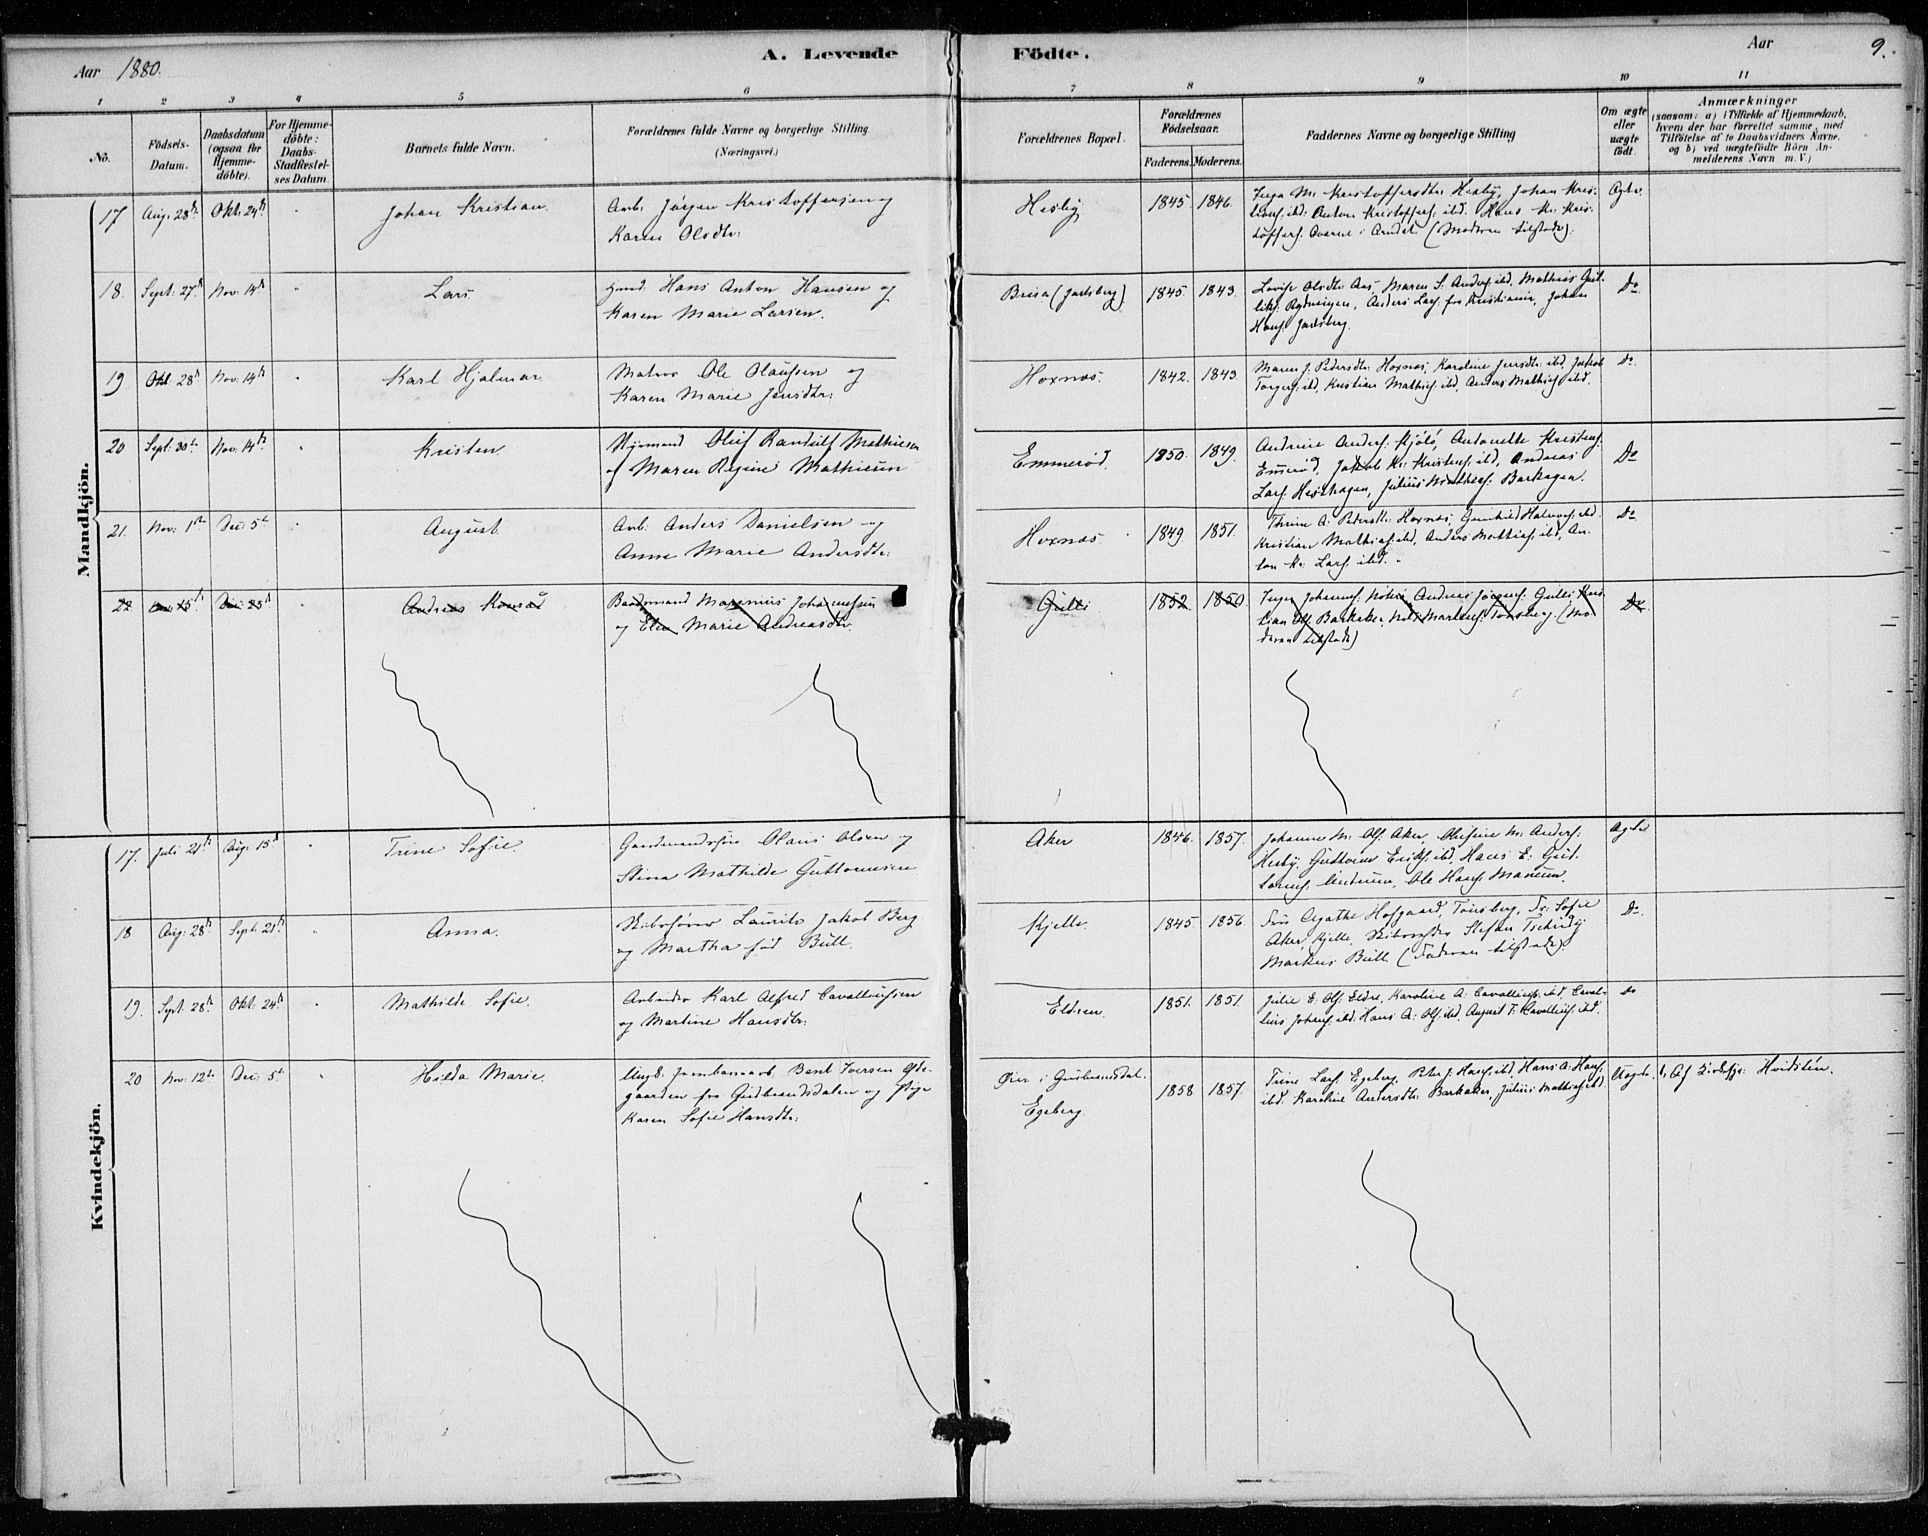 Aar 1880.
A. Levende
Födte.
Aar
9.
1 2 3 4 5 6 7 8 9 10 11
Nö.
Födsels-
Datum.
Daabsdatum
(ogsaa for
Hjemme-
döbte).
For Hjemme-
döbte:
Daabs-
Stadfæstel-
ses Datum.
Barnets fulde Navn.
Forældrenes fulde Navne og borgerlige Stilling
(Næringsvei.)
Forældrenes Bopæl.
Forældrenes
Födselsaar.
Faderens. Moderens.
Faddernes Navne og borgerlige Stilling
Om ægte
eller
uægte
födt.
Anmærkninger
(saasom: a) i Tilfælde af Hjemmedaab,
hvem der har forrettet samme, med
Tilföielse af to Daabsvidners Navne,
og b) ved uægtefödte Börn An-
melderens Navn m. V.)
Mandkjön.
17 Aug: 28de Okt: 24de Johan Kristian.
Arb: Jörgen Kristoffersen og
Karen Olsdtr:
Hesby 1845. 1846.
Inga M: Kristoffersdtr: Hesby, Johan Kris-
ibd: Anton Kristoffers: ibd. Hans Kr: Kris-
toffers: i Arndal. (Moderen tilstede).
Ægte.
18. Sept: 27de Nov: 14de Lars
Hans Anton Hansen og
Karen Marie Larsen.
(Jarlsberg) 1845. 1843.
Lovise Olsdtr: Aas, Maren S. Anders: ibd, Mathias
Anders Lars: fra Kristiania, Johan
Hans: Jarlsberg.
Do
19 Okt 28de Nov: 14de Karl Hjalmar
Matros Ole Olaussen og
Karen Marie Jensdtr:
Hoxnæs. 1842. 1843
Maren J. Pedersdtr: Hoxnæs, Karoline Jensdtr: ibd, Jakob
Torgers: ibd, Kristian Mathias: ibd, Anders Mathias: ibd.
Do
20 Sept: 30te Nov: 14de Kristen
Styrmand Oluf Randulf Mathisen
og Maren Regine Mathisen
Emmerød. 1850. 1849.
Andrine Anders: Kjölö, Antonette Kristens:
Emerød, Jakob Kr: Kristens: ibd, Andreas
Lars: Julius Mathias: Barkager.
Do
21. Nov: 1ste Dec: 5te August.
Arb: Anders Danielsen og
Anne Marie Andersdtr:
Hoxnæs. 1849 1851.
Thrine A: Pedersdtr: Hoxnæs, Gunhild Halvors: ibd.
Kristian Mathias: ibd, Anders Mathias: ibd, An-
ton Kr: Lars: ibd.
Do
22. 15de Dec: 25de Andreas Konrad
Baadsmand Magnus Johannesen
og Elen Marie Andreasdtr.
Gulli 1852 1850.
Inger Johannes: Andreas Jörgens: Gulli, Kris-
tian Ols: Barkaker, Nils Martins: Tonsberg. (Mo-
deren tilstede)
Do
Kvindekjön.
17. Juli 21de Aug: 15de Trine Sofie.
Gaardmandssön Olaus Olsen og
Stina Mathilde Guttormsen
Aker 1846. 1857.
Johanne M: Ols: Aker, Olufine M: Anders:
Hesby, Guttorm Eriks: ibd, Hans E: Gut-
torms: Ole Hans: Manum.
Ægte
18 Aug: 28de Sept: 21de Anna.
Skibsförer Laurits Jakob Berg
og Martha föd Bull.
Kjelle. 1845. 1856.
Fru Agathe Hofgaard, Tönsberg, Fr: Sofie
Aker, Kjelle, Stefan Tschudy
Markus Bull. (Faderen tilstede).
Do
19. Sept: 28de Okt: 24de Mathilde Sofie.
Arbeider Karl Alfred Cavalliussen
og Martine Hansdtr:
Eldren. 1851. 1851.
Julie E. Ols: Eldre, Karoline A: Cavallius: ibd, Caval-
lius Johans: ibd. Hans A: Ols: ibd, August F: Cavallius: ibd.
Do
20 Nov: 12te Dec: 5te Hilda Marie.
Ungk. Jernbanearb. Bent Iversen
gaarden fra Gudbrandsdalen og Pige
Karen Sofie Hansdtr:
Öier i Gudbrandsdal.
Egeberg 1858 1857.
Trine Lars: Egeberg, Peter J. Hans: ibd, Hans A: Hans:
ibd. Karoline Andersdtr: Barkaker, Julius Mathias: ibd
Uægte. Af Hvidsten.